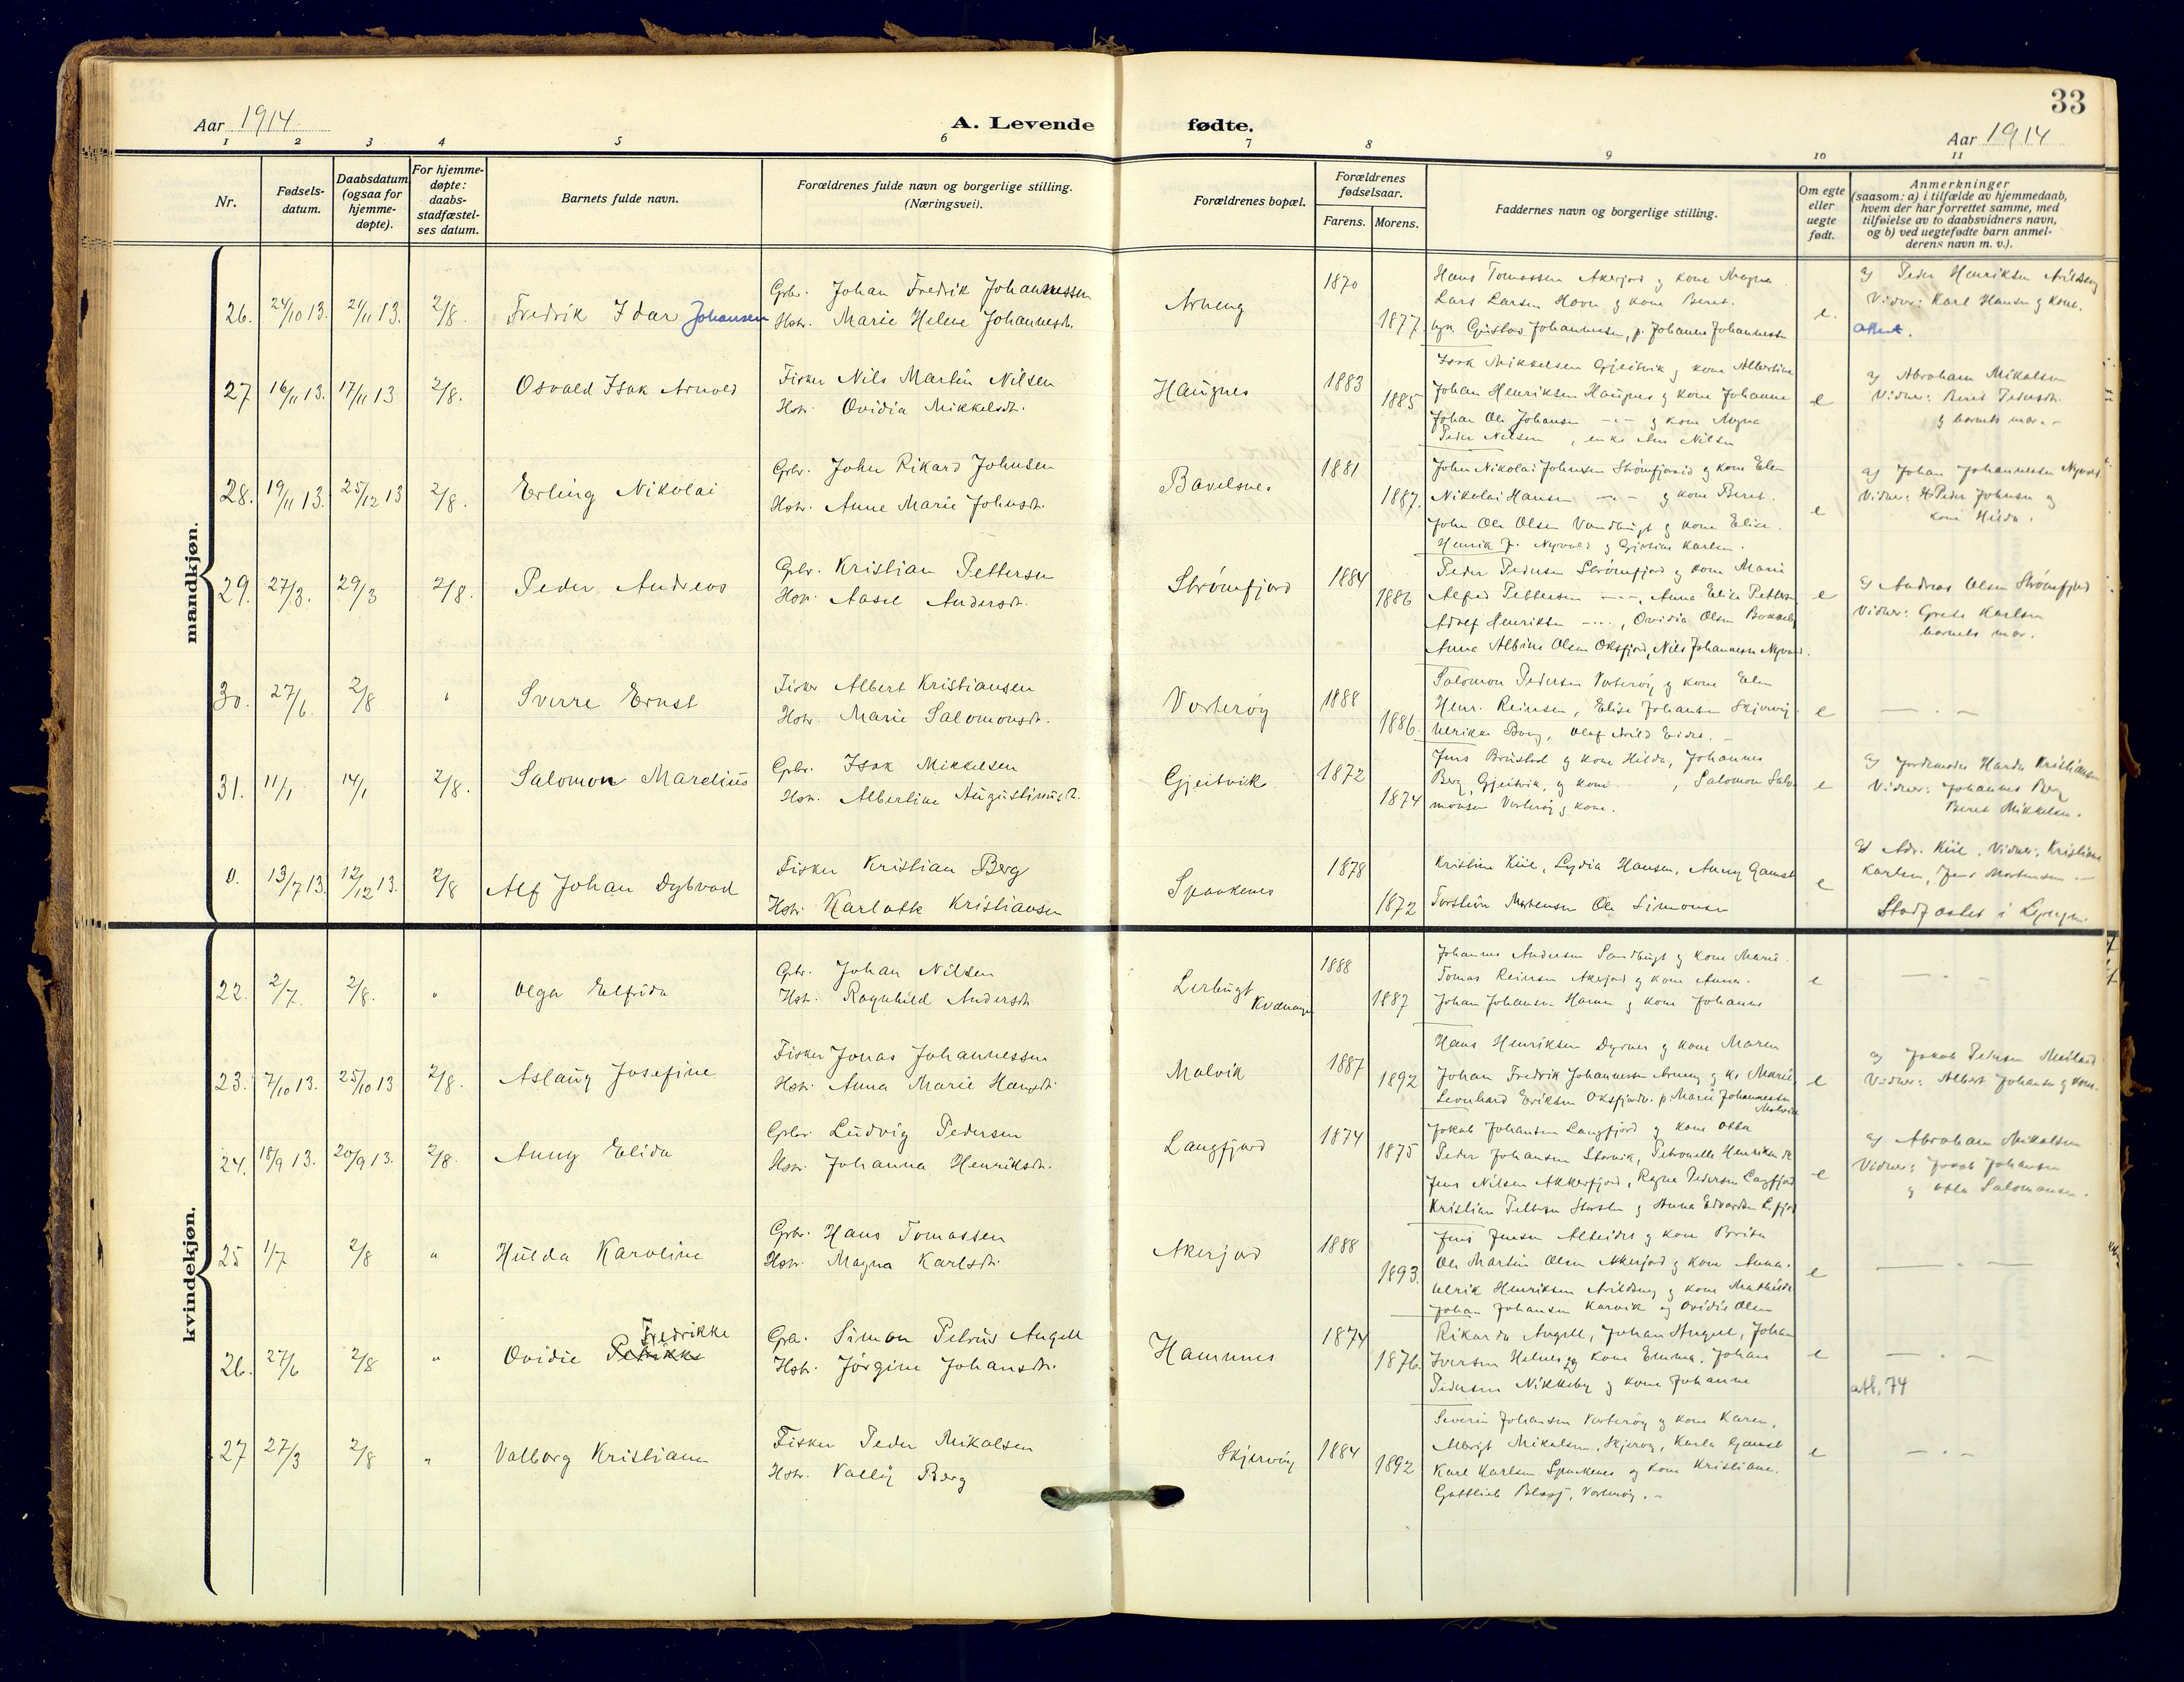 33
Aar 1914
A. Levende fødte.
Aar 1914
1 2 3 4 5 6 7 8 9 10 11
Nr.
Fødsels-
datum.
Daabsdatum
(ogsaa for
hjemme-
døpte).
For hjemme-
døpte:
daabs-
stadfæstel-
ses datum.
Barnets fulde navn.
Forældrenes fulde navn og borgerlige stilling.
(Næringsvei).
Forældrenes bopæl.
Forældrenes
fødselsaar.
Farens. Morens.
Faddernes navn og borgerlige stilling.
Om egte
eller
uegte
født.
Anmerkninger
(saasom: a) i tilfælde av hjemmedaab,
hvem der har forrettet samme, med
tilføielse av to daabsvidners navn,
og b) ved uegtefødte barn anmel-
derens navn m. v.).
mandkjøn.
26. 24/10 13. 21/11 13. 2/8. Fredrik Idar Johansen
Grbr. Johan Fredrik Johannessen
Hstr. Marie Helene Johannesdt.
Arneng 1870 1877
Hans Tomassen Akerjord og kone Magna
Lars Larsen Havn og kone Beret.
Gustav Johannessen, p. Johanne Johannessen
e.
Peder Henriksen Arildseng
Vidner: Karl Hansen og kone.
27 16/11 13. 17/11 13 2/8. Osvald Isak Arnold
Fisker Nils Martin Nilsen
Hstr. Ovidia Mikkelsdt.
Haugnes 1883 1885
Isak Mikkelsen Gjeitvik og kone Albertine
Johan Henriksen Haugnes og kone Johanne
Johan Ole Johansen -"- og kone Magna
Peder Nilsen, enke Ane Nilsen
e
Abraham Mikalsen
Vidner: Beret Pedersdt.
og barnets mor. -
28. 19/11 13. 25/12 13 2/8. Erling Nikolai
Grbr. John Rikard Johnsen
Hstr. Anne Marie Johnsdt.
Bavelsnes 1881 1887.
John Nikolai Johnsen Strømfjord og kone Elen
Nikolai Hansen -"- og kone Beret.
John Ole Olsen Vandbugt og kone Elise.
Henrik J. Nyvold og Gjertine Karlsen.
e
Johan Johannessen Nyvold
Vidner: H. Peder Johnsen og
kone Hilda.
29. 27/3. 29/3 2/8. Peder Andreas
Grbr. Kristian Pettersen
Hstr. Aasel Andersdt.
Strømfjord 1884 1886
Peder Pedersen Strømfjord og kone Marie
Alfred Pettersen -"-, Anna Elise Pettersen
Adolf Henriksen -"-, Ovidia Olsen Bakkeby
Anna Albine Olsen Oksfjord, Nils Johannessen Nyvold.
e
Andreas Olsen Strømfjord
Vidner: Grete Karlsen
barnets mor.
30. 27/6. 2/8 " Sverre Ernst
Fisker Albert Kristiansen
Hstr. Marie Salomonsdt.
Vorterøy 1888 1886.
Salomon Pedersen Vorterøy og kone Elen
Henr. Reiersen, Elise Johansen Skjervøy
Ulrikke Berg, Olaf Arild Eide. -
e
31. 11/1 14/1 2/8. Salomon Marelius
Grbr. Isak Mikkelsen
Hstr. Albertine Augustinusdt.
Gjeitvik 1872 1874
Jens Brustad og kone Hilda, Johannes
Berg, Gjeitvik, og kone , Salomon Salo-
monsen Vorterøy og kone.
e
Jordmoder Harda Kristiansen
Vidner: Johannes Berg
Beret Mikkelsen.
0. 13/7 13. 12/12 13. 2/8 Alf Johan Dybvad
Fisker Kristian Berg
Hstr. Karlotte Kristiansen
Spaakenes 1878 1872
Kristine Kiil, Lydia Hansen, Anny Gamst
Torstein Mortensen Ole Simonsen
e
Adr. Kiil, Vidner: Kristiane
Karlsen, Jens Mortensen. -
Stadfæstet i Lyngen.
kvindekjøn.
22. 2/7. 2/8. " Olga Elfrida
Grbr. Johan Nilsen
Hstr. Ragnhild Andersdt.
Lerbugt
Kvænangen
1888 1887
Johannes Andersen Sandbugt og kone Marie.
Tomas Reiersen Akerjord og kone Anna.
Johan Johansen Hamn og kone Johanne
e
23. 7/10 13. 25/10 13 2/8. Aslaug Josefine
Fisker Jonas Johannessen
Hstr. Anna Marie Hansdt.
Malvik 1887 1892
Hans Henriksen Dyrnes og kone Maren
Johan Fredrik Johannessen Arneng og k. Marie
Leonhard Eriksen Oksfjord. p. Marie Johannessen
Malvik
e
Jakob Pedersen
Vidner: Albert Johansen og kone.
24. 18/9 13. 20/9 13. 2/8. Anny Elida
Grbr. Ludvig Pedersen
Hstr. Johanna Henriksdt.
Langfjord 1874 1875
Jakob Johansen Langfjord og kone Otta
Peder Johansen Storvik, Petronelle Henriksen
Jens Nilsen Akkerfjord, Ragna Pedersen Langfjord
Kristian Pettersen og Anna Edvardsen L.fjord
e
Abraham Mikalsen
Vidner: Jakob Johansen
og Otta Salomonsen.
25 1/7 2/8 " Hulda Karoline
Grbr. Hans Tomassen
Hstr. Magna Karlsdt.
Akerjord 1888 1893.
Jens Jensen Alteidet og kone Brita
Ole Martin Olsen Akerjord og kone Anna.
Ulrik Henriksen Arildseng og kone Mathilde
Johan Johansen Karvik og Ovidie Olsen
e
26. 27/6 2/8 " Ovidie Petrikke Fredrikke
Grbr. Simon Petrus Angell
Hstr. Jørgine Johansdt.
Hamnnes 1874 1876.
Rikarda Angell, Johan Angell, Johan
Iversen Helnes og kone Emma, Johan
Pedersen Nikkeby og kone Johanne
e
att. 74
27 27/3 2/8 " Valborg Kristiane
Fisker Peder Mikalsen
Hstr. Vally Berg
Skjervøy 1884 1892
Severin Johansen Vorterøy og kone Karen,
Albrigt Mikalsen, Skjervøy, Karla Gamst
Karl Karlsen Spaakenes og kone Kristiane.
Gottlieb Blogj, Vorterøy. -
e